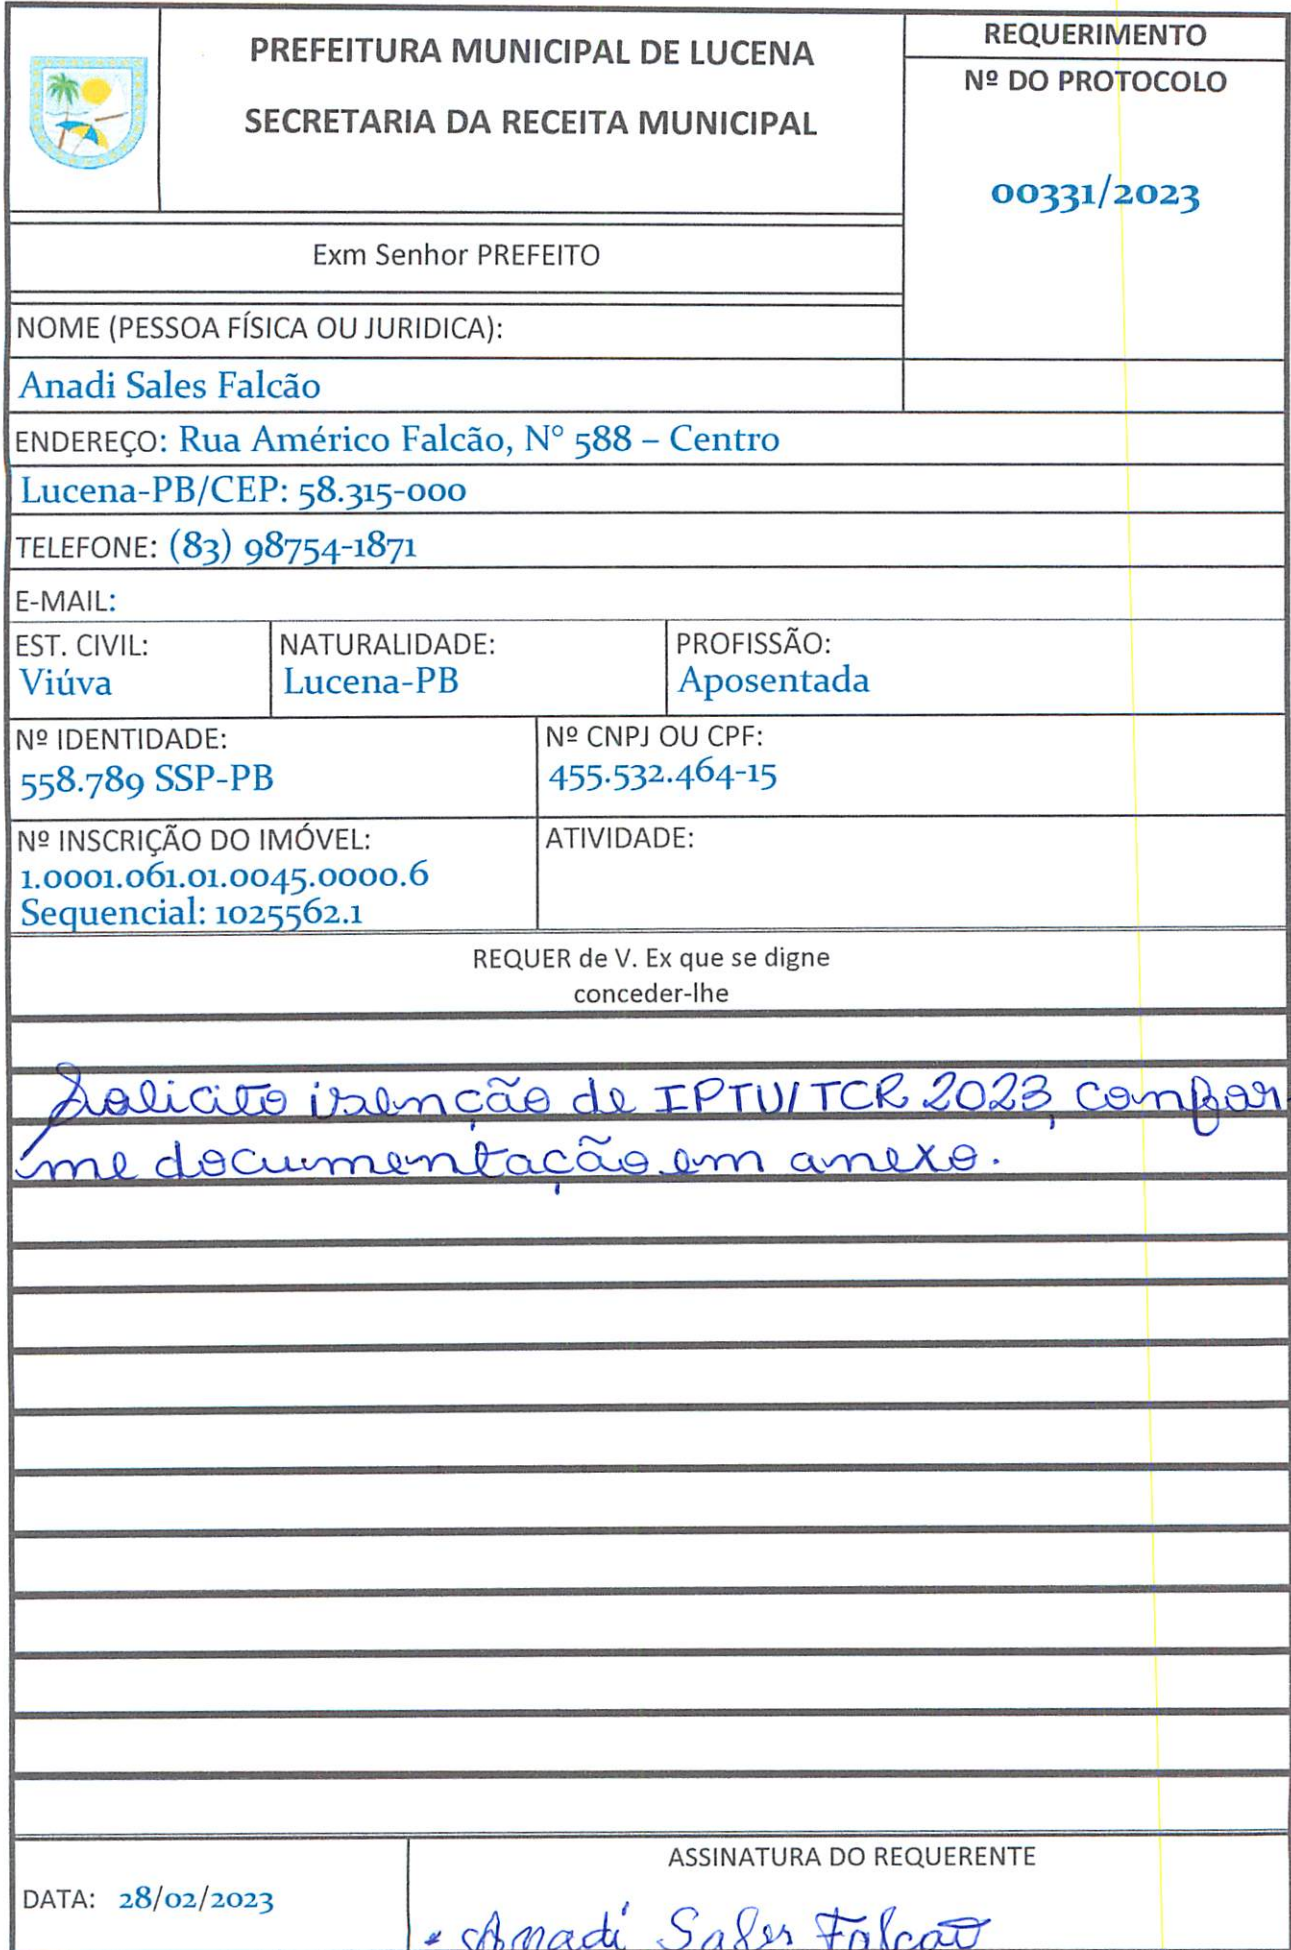 PREFEITURA MUNICIPAL DE LUCENA
SECRETARIA DA RECEITA MUNICIPAL
REQUERIMENTO
Nº DO PROTOCOLO
00331/2023
Exm Senhor PREFEITO
NOME (PESSOA FÍSICA OU JURIDICA):
Anadi Sales Falcão
ENDEREÇO: Rua Américo Falcão, N° 588 – Centro
Lucena-PB/CEP: 58.315-000
TELEFONE: (83) 98754-1871
E-MAIL:
EST. CIVIL:
Viúva
NATURALIDADE:
Lucena-PB
PROFISSÃO:
Aposentada
Nº IDENTIDADE:
558.789 SSP-PB
Nº CNPJ OU CPF:
455.532.464-15
Nº INSCRIÇÃO DO IMÓVEL:
1.0001.061.01.0045.0000.6
Sequencial: 1025562.1
ATIVIDADE:
REQUER de V. Ex que se digne
conceder-lhe
Solicito isenção de IPTU/TCR 2023, confor
me documentação em anexo.
DATA: 28/02/2023
ASSINATURA DO REQUERENTE
Anadi Sales Falcão